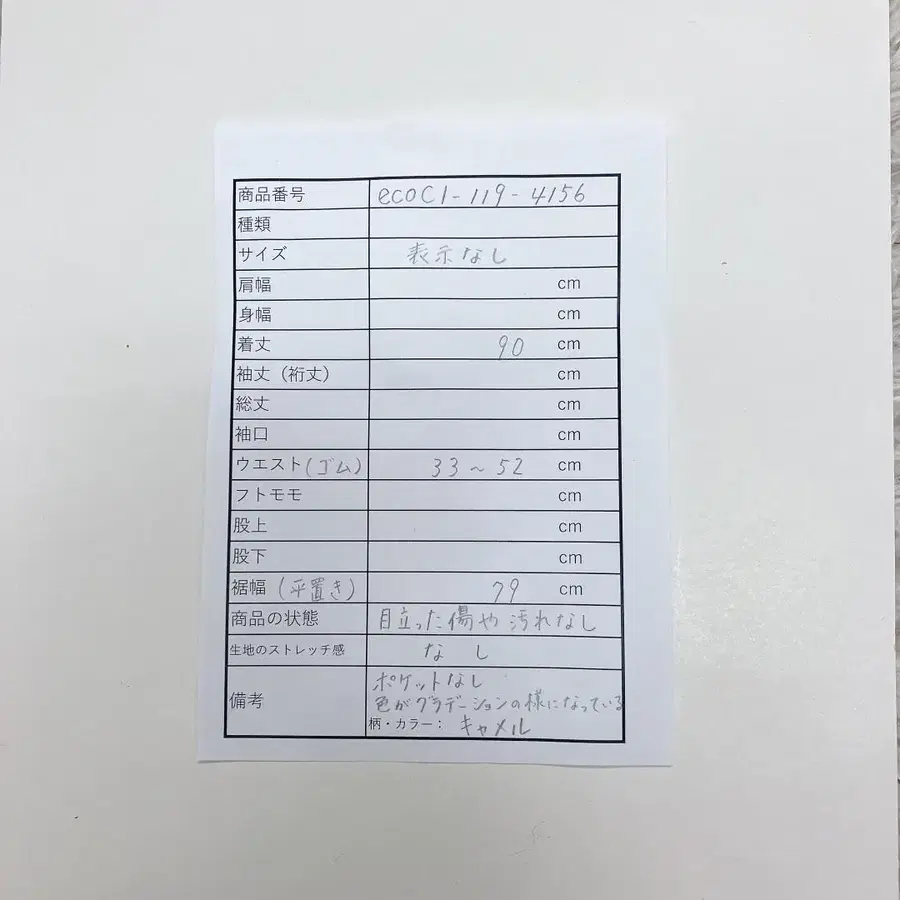 商品番号 ecoC1-119-4156
種類
サイズ 表示なし
肩幅 cm
身幅 cm
着丈 90 cm
袖丈（裄丈） cm
総丈 cm
袖口 cm
ウエスト(ゴム) 33~52 cm
フトモモ cm
股上 cm
股下 cm
裾幅 (平置き) 79 cm
商品の状態 目立った傷や汚れなし
生地のストレッチ感 なし
備考 ポケットなし
色がグラデーションの様になっている
柄・カラー： キャメル